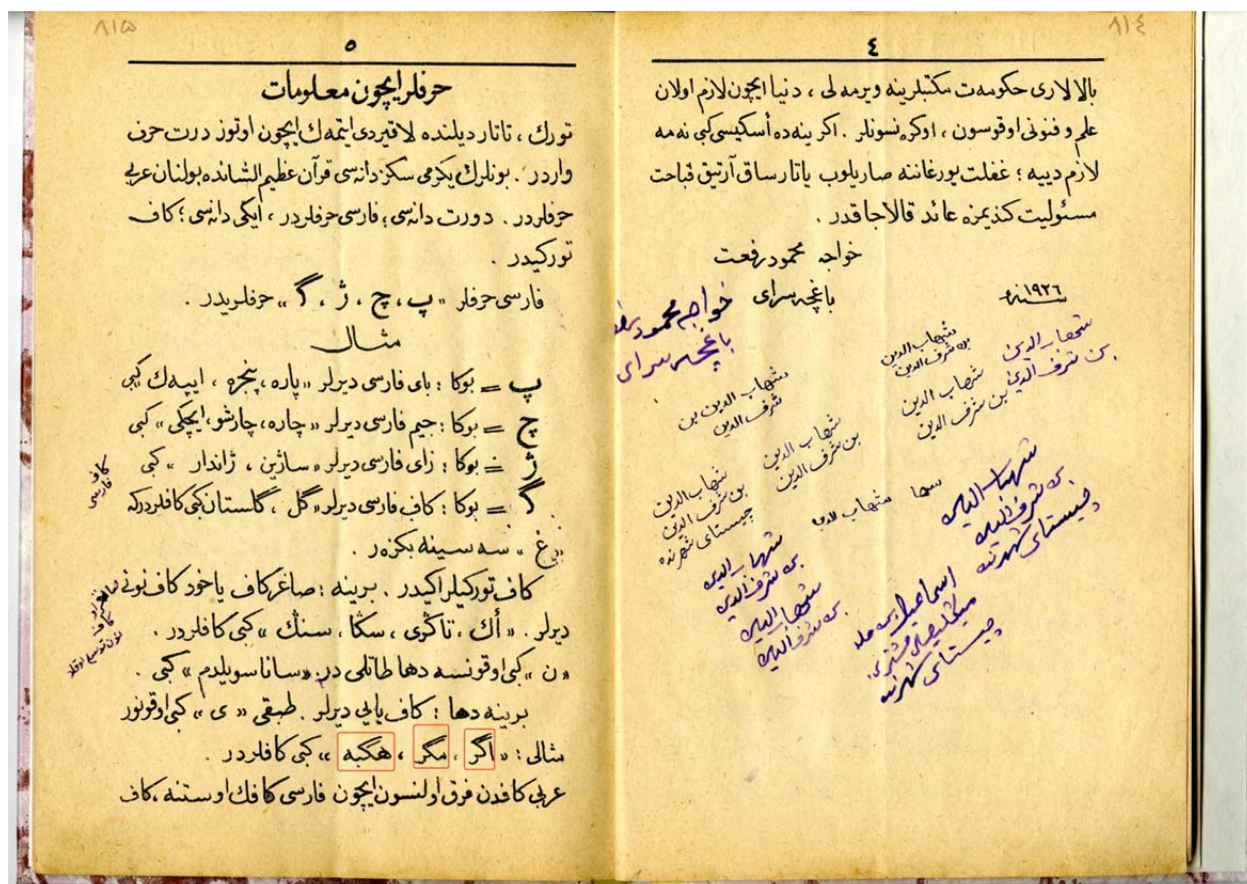 ٨١٤
٤
بالالارى حكومه‌ت مكتبلرينه ويرمه‌لى ، دنيا ايچون لازم اولان
علم و فنونى اوقوسون ، اوكره‌نسونلر . اكر ينه‌ده أسكيسى كبى نه‌مه
لازم دييه ؛ غفلت يورغاننه صاريلوب ياتارساق آرتيق قباحت
مسئوليت كنديمزه عائد قالاجاقدر .
خواجه محمود رفعت
باغچه سراى
١٩٢٦ سنه
خواجه محمود
باغچه سراى
شهاب الدين
بن شرف الدين
شهاب الدين
بن شرف الدين
شهاب الدين
بن شرف الدين
شهاب الدين بن
شرف الدين
شهاب الدين
بن شرف الدين
شهاب الدين
بن شرف الدين
چيستاى شهرنده
شهاب الدين
بن شرف الدين
چيستاى شهرنده
شهاب الدين
بن شرف الدين
شهاب الدين
بن شرف الدين
اسماعيل
چيستاى شهرنده
٨١٥
٥
حرفلر ايچون معلومات
تورك ، تاتار ديلنده لاقيردى ايتمه‌ك ايچون اوتوز درت حرف
واردر . بونلرڭ يكرمى سكز دانه‌سى قرآن عظيم الشانده بولنان عربى
حرفلردر . دورت دانه‌سى ؛ فارسى حرفلردر ، ايكى دانه‌سى ؛ كاف
توركيدر .
فارسى حرفلر « پ ، چ ، ژ ، گ » حرفلريدر .
مثال
پ = بوكا : باى فارسى ديرلر « پاره ، پنجره ، ايپه‌ك كبى
چ = بوكا : جيم فارسى ديرلر « چاره ، چارشو ، ايچكى » كبى
ژ = بوكا : زاى فارسى ديرلر « ساژين ، ژاندار » كبى
گ = بوكا : كاف فارسى ديرلر « گل ، گلستان كبى كافلردركه
« غ » سه‌سينه بكزه‌ر .
كاف توركيلر ايكيدر . برينه : صاغر كاف ياخود كاف نونى
ديرلر . « أڭ ، تاڭرى ، سڭا ، سنڭ » كبى كافلردر .
« ن » كبى اوقونسه دها طاتلى در « سانا سويلدم » كبى .
برينه دها : كاف يايى ديرلر . طبقى « ى » كبى اوقونور
مثالى : « اگر ، مگر ، هگبه » كبى كافلردر .
عربى كافدن فرق اولنسون ايچون فارسى كافڭ اوستنه ، كاف
كاف
فارسى